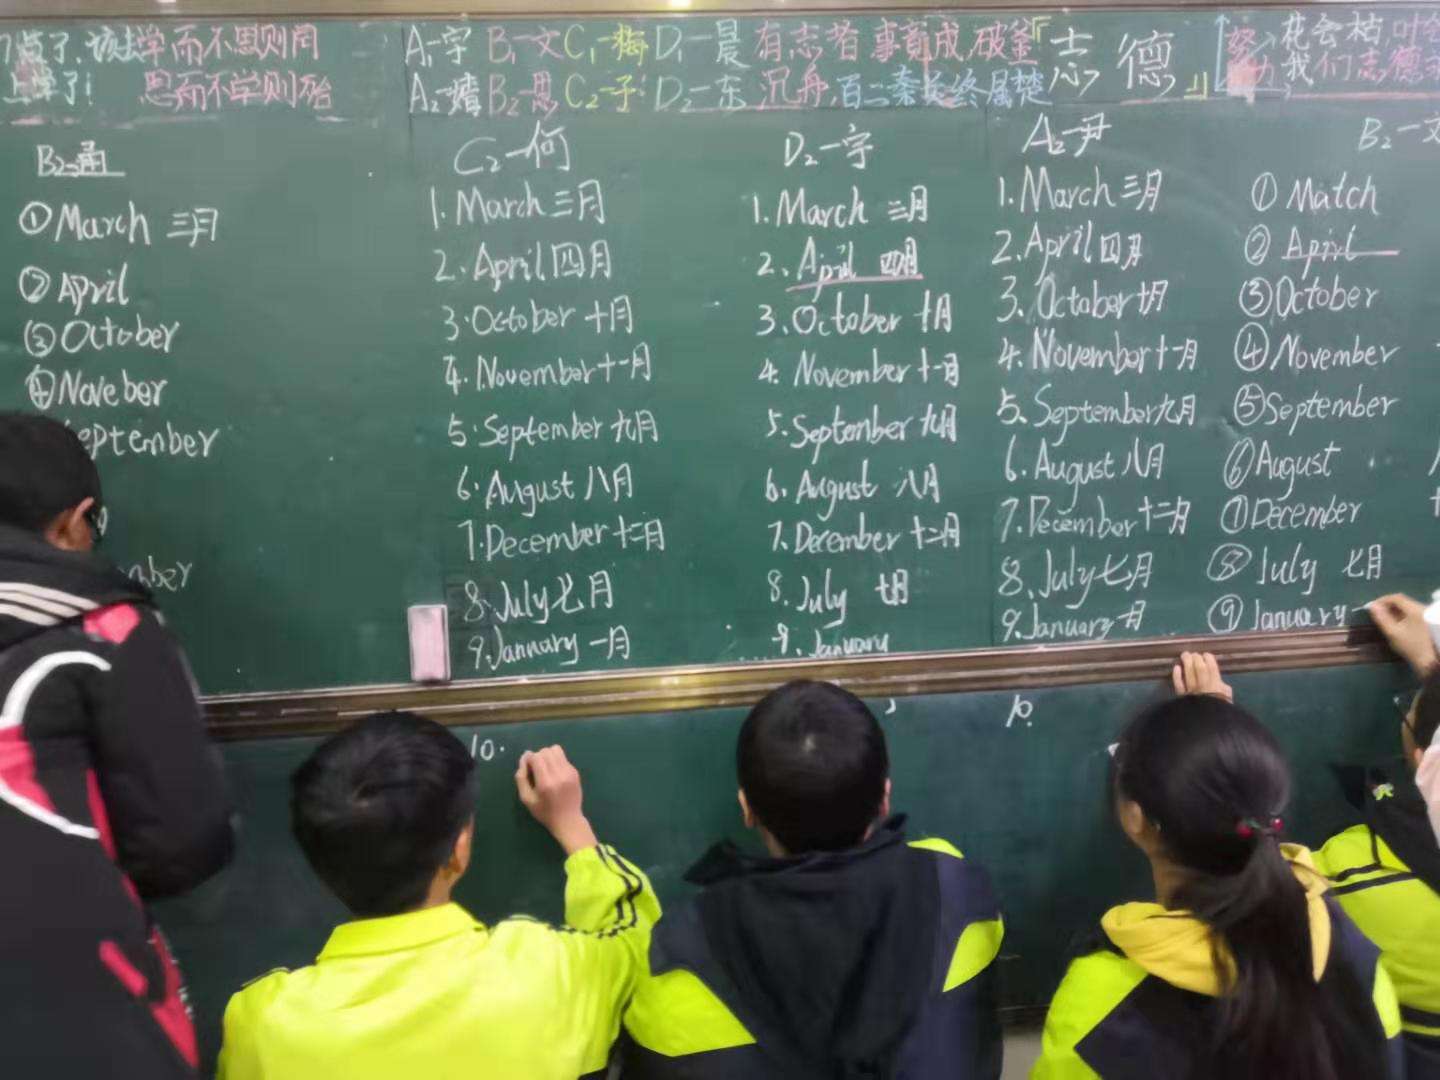 学而不思则罔
思而不学则殆
A₁一字 B₁一文 C₁一梅 D₁一晨
A₂一婧 B₂一思 C₂一子 D₂一东
有志者事竟成,破釜
沉舟,百二秦关终属楚
「志德」
努力
花会枯
我们志德
B₂
①March 三月
②April
③October
④Noveber
eptember
mber
C₂一何
1.March 三月
2.April 四月
3.October 十月
4.November 十一月
5.September 九月
6.August 八月
7.December 十二月
8.July 七月
9.January 一月
10.
D₂一字
1.March 三月
2.April 四月
3.October 十月
4.November 十一月
5.September 九月
6.August 八月
7.December 十二月
8.July 七月
9.January
A₂一尹
1.March 三月
2.April 四月
3.October 十月
4.November 十一月
5.September 九月
6.August 八月
7.December 十二月
8.July 七月
9.January 一月
10.
B₂一文
①Match
②April
③October
④November
⑤September
⑥August
⑦December
⑧July 七月
⑨January 一